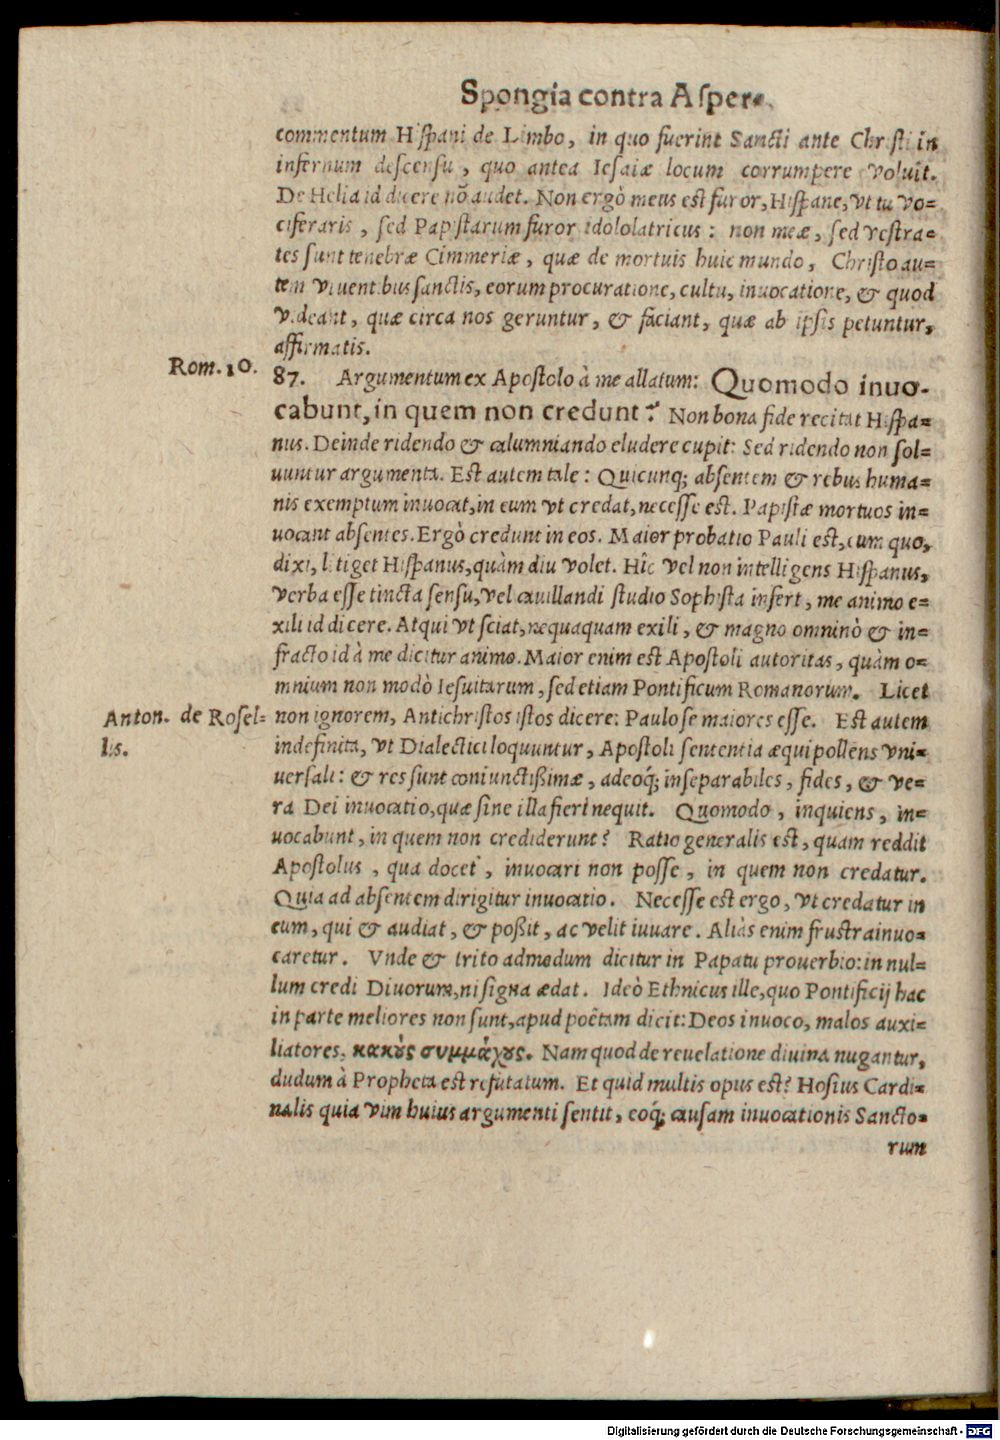 Spongia contra Asper-
commentum Hispani de Limbo, in quo fuerint Sancti ante Christi in
infernum descensū, quo antea Iesaiæ locum corrumpere voluit.
De Helia id dicere nō audet. Non ergò meus est furor, Hispane, vt tu vo=
ciferaris, sed Papistarum furor idololatricus: non meæ, sed vestra=
tes sunt tenebræ Cimmeriæ, quæ de mortuis huic mundo, Christo au=
tem viuentibus sanctis, eorum procuratione, cultu, inuocatione, & quod
videant, quæ circa nos geruntur, & faciant, quæ ab ipsis petuntur,
affirmatis.
Rom. 10.
87. Argumentum ex Apostolo à me allatum: Quomodo inuo-
cabunt, in quem non credunt? Non bona fide recitat Hispa=
nus. Deinde ridendo & calumniando eludere cupit: Sed ridendo non sol=
uuntur argumenta. Est autem tale: Quicunq; absentem & rebus huma=
nis exemptum inuocat, in eum vt credat, necesse est. Papistæ mortuos in=
uocant absentes. Ergò credunt in eos. Maior probatio Pauli est, cum quo,
dixi, litiget Hispanus, quàm diu volet. Hîc vel non intelligens Hispanus,
verba esse tincta sensu, vel cauillandi studio Sophista infert, me animo e=
xili id dicere. Atqui vt sciat, nequaquam exili, & magno omninò & in=
fracto id à me dicitur animo. Maior enim est Apostoli autoritas, quàm o=
mnium non modò Iesuitarum, sed etiam Pontificum Romanorum. Licet
Anton. de Rosel=
lis.
non ignorem, Antichristos istos dicere: Paulo se maiores esse. Est autem
indefinita, vt Dialectici loquuntur, Apostoli sententia æquipollens vni=
uersali: & res sunt coniunctißimæ, adeoq; inseparabiles, fides, & ve=
ra Dei inuocatio, quæ sine illa fieri nequit. Quomodo, inquiens, in=
uocabunt, in quem non crediderunt? Ratio generalis est, quam reddit
Apostolus, qua docet, inuocari non posse, in quem non credatur.
Quia ad absentem dirigitur inuocatio. Necesse est ergo, vt credatur in
eum, qui & audiat, & poßit, ac velit iuuare. Aliàs enim frustra inuo=
caretur. Vnde & trito admodum dicitur in Papatu prouerbio: in nul=
lum credi Diuorum, ni signa ædat. Ideò Ethnicus ille, quo Pontificij hac
in parte meliores non sunt, apud poëtam dicit: Deos inuoco, malos auxi=
liatores, κακοὺς συμμάχους. Nam quod de reuelatione diuina nugantur,
dudum à Propheta est refutatum. Et quid multis opus est? Hosius Cardi=
nalis quia vim huius argumenti sentit, eoq; causam inuocationis Sancto=
rum
Digitalisierung gefördert durch die Deutsche Forschungsgemeinschaft - DFG